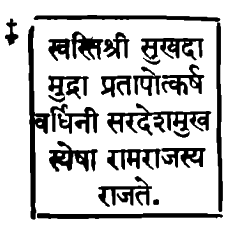 स्वस्तिश्री सुखदा
मुद्रा प्रतापोत्कर्ष
वर्धिनी सरदेशमुख
स्येषा रामराजस्य
राजते.